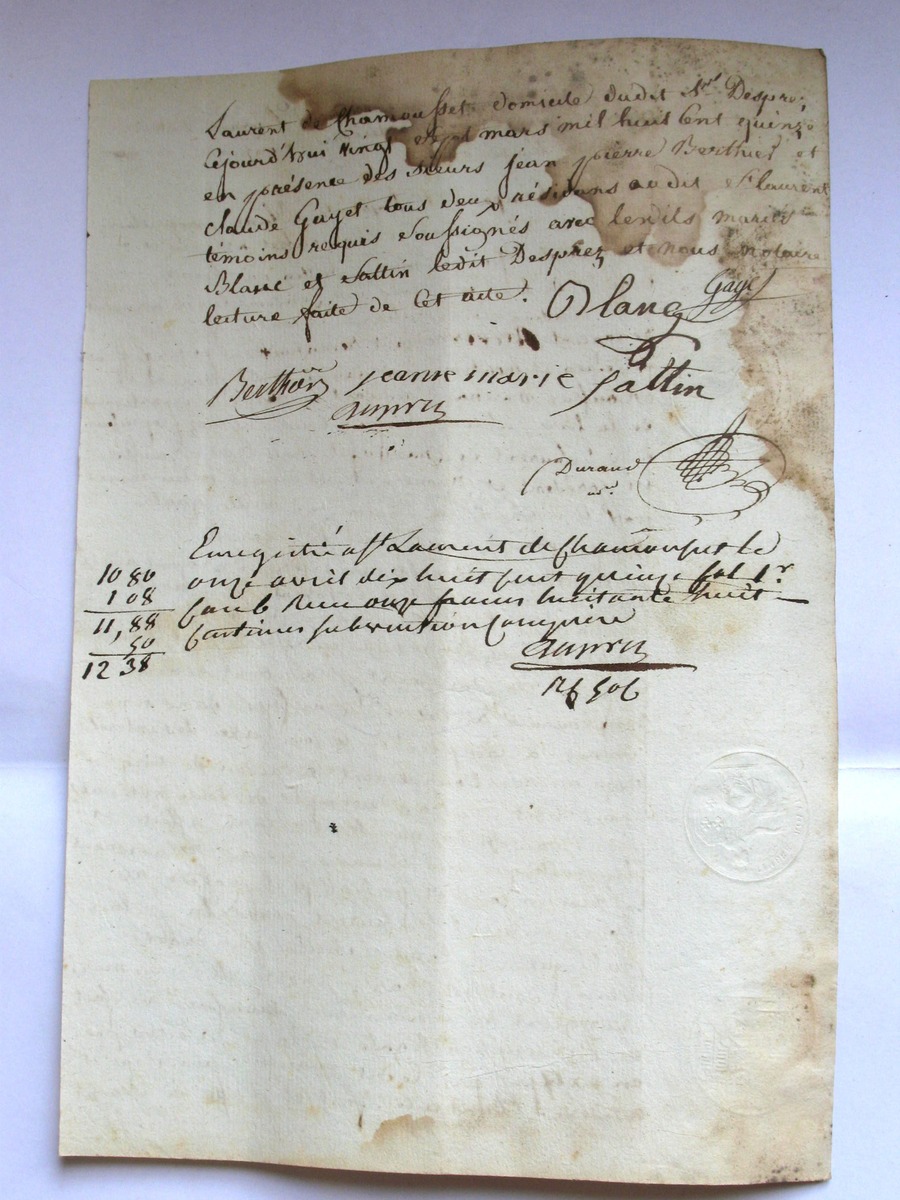 Laurent de Chamousset domicile dudit Sr. Desprez,
Cejourd'hui vingt sept mars mil huit cent quinze
en présence des sieurs jean pierre Berthier et
claude Gayet tous deux résidans audit St laurent
témoins requis soussignés avec lesdits mariés
Blanc et Sattin ledit Desprez et nous notaire
lecture faite de cet acte.
Gayet
Blanc
Berthier jeanne marie Sattin
Durand
Enregistré a St Laurent de Chamousset le
onze avril dix huit cent quinze fol 1.r
onze francs huitante huit
Centimes subvention Comprise
10 80
1 08
11,88
50
12 38
12f 50c